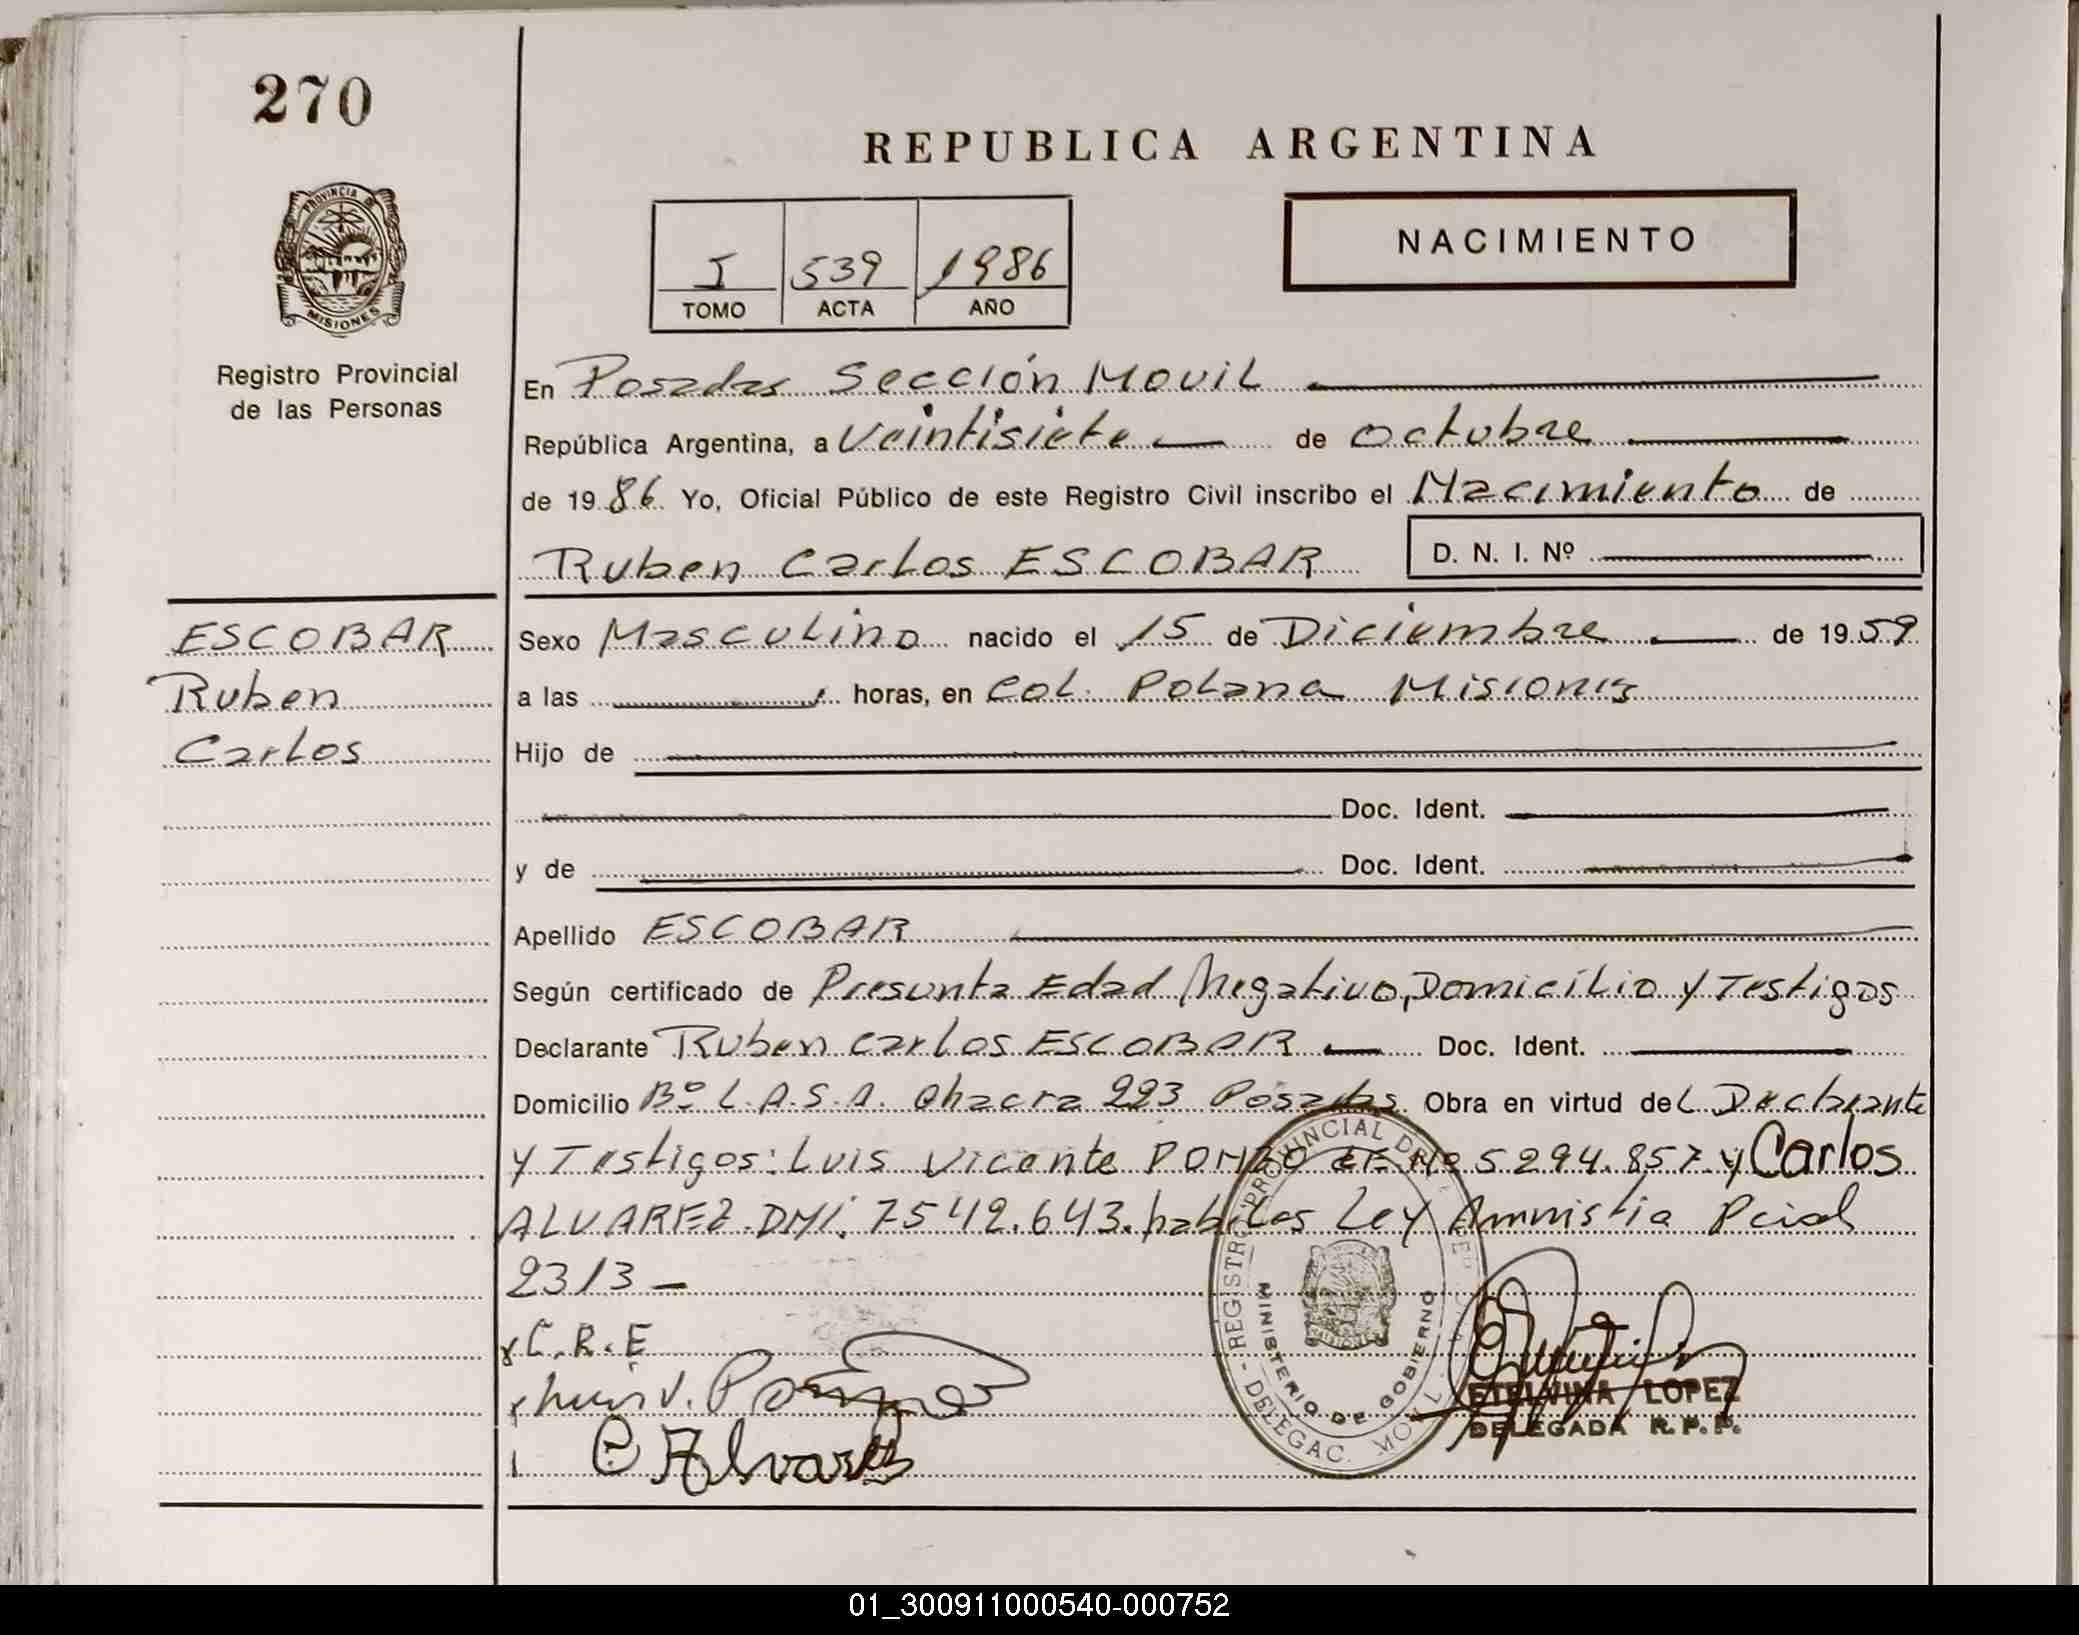 270
REPUBLICA ARGENTINA
PROVINCIA DE
MISIONES
NACIMIENTO
I 539 1986
TOMO ACTA AÑO
Registro Provincial
de las Personas
En Posadas Sección Movil
República Argentina, a Veintisiete de Octubre
de 1986 Yo, Oficial Público de este Registro Civil inscribo el Nacimiento de
Ruben Carlos ESCOBAR D. N. I. Nº
ESCOBAR
Ruben
Carlos
Sexo Masculino nacido el 15 de Diciembre de 1959
a las horas, en Col. Polana Misiones
Hijo de
Doc. Ident.
y de Doc. Ident.
Apellido ESCOBAR
Según certificado de Presunta Edad Negativo, Domicilio y Testigos
Declarante Ruben Carlos ESCOBAR Doc. Ident.
Domicilio Bº L.A.S.A. Chacra 223 Posadas Obra en virtud del Declarante
y Testigos: Luis Vicente POMBO Nº 5294.857 y Carlos
ALVAREZ DNI. 7542.643. habiles Ley Amnistia Pcial
2313 -
C.R.E
Luis V. Pombo
C Alvarez
REGISTRO PROVINCIAL DE
DELEGAC. MOVIL
MINISTERIO DE GOBIERNO
ETELVINA LOPEZ
DELEGADA R.P.P.
01_300911000540-000752